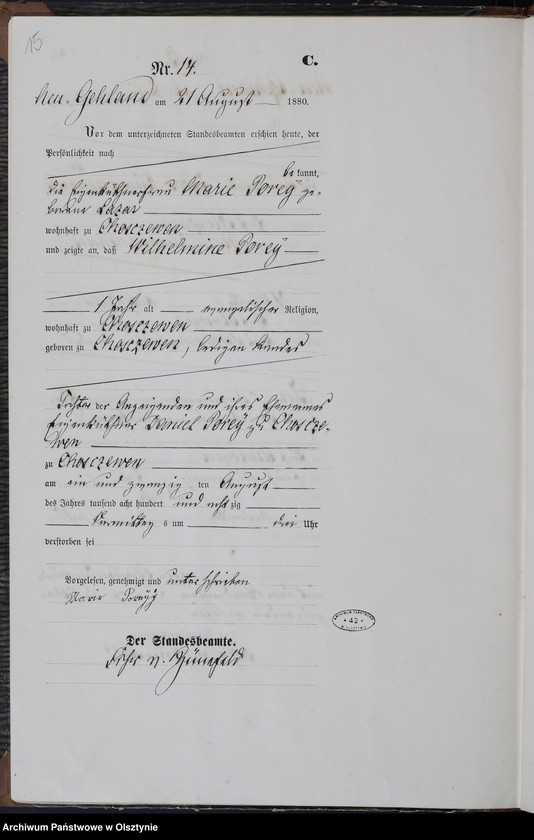 15
C.
Nr. 14.
Neu-Gehland am 21 August 1880.
Vor dem unterzeichneten Standesbeamten erschien heute, der
Persönlichkeit nach
bekannt,
die Eigenkäthnerfrau Marie Porey ge-
borene Lazar
wohnhaft zu Choszewen
und zeigte an, daß Wilhelmine Porey
1 Jahr alt evangelischer Religion,
wohnhaft zu Choszewen
geboren zu Choszewen, ledigen Standes
Tochter der Anzeigenden und ihres Ehemannes
Eigenkäthner Daniel Porey zu Choscze-
wen
zu Choszewen
am ein und zwanzig ten August
des Jahres tausend acht hundert und acht zig
Vormittags um drei Uhr
verstorben sei
Vorgelesen, genehmigt und unterschrieben
Marie
Der Standesbeamte.
v.
42
Archiwum Państwowe w Olsztynie